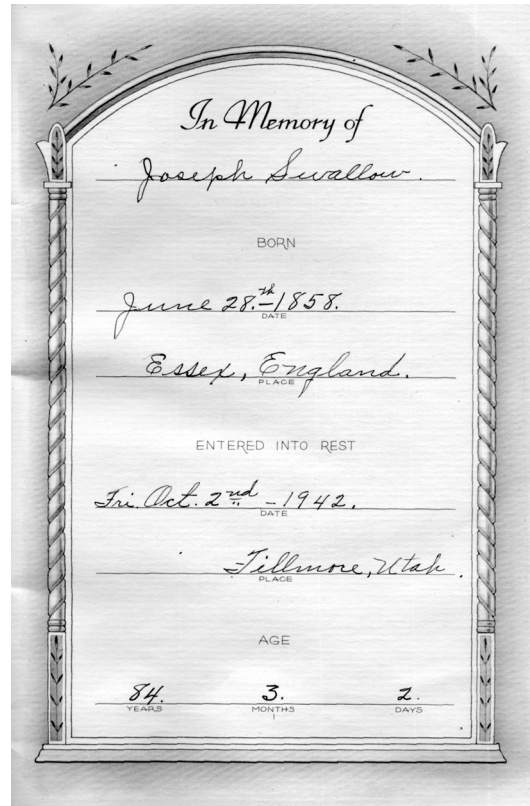 In Memory of
Joseph Swallow.
BORN
June 28.th - 1858.
DATE
Essex, England.
PLACE
ENTERED INTO REST
Fri. Oct. 2nd - 1942.
DATE
Fillmore, Utah.
PLACE
AGE
84. 3. 2.
YEARS MONTHS DAYS